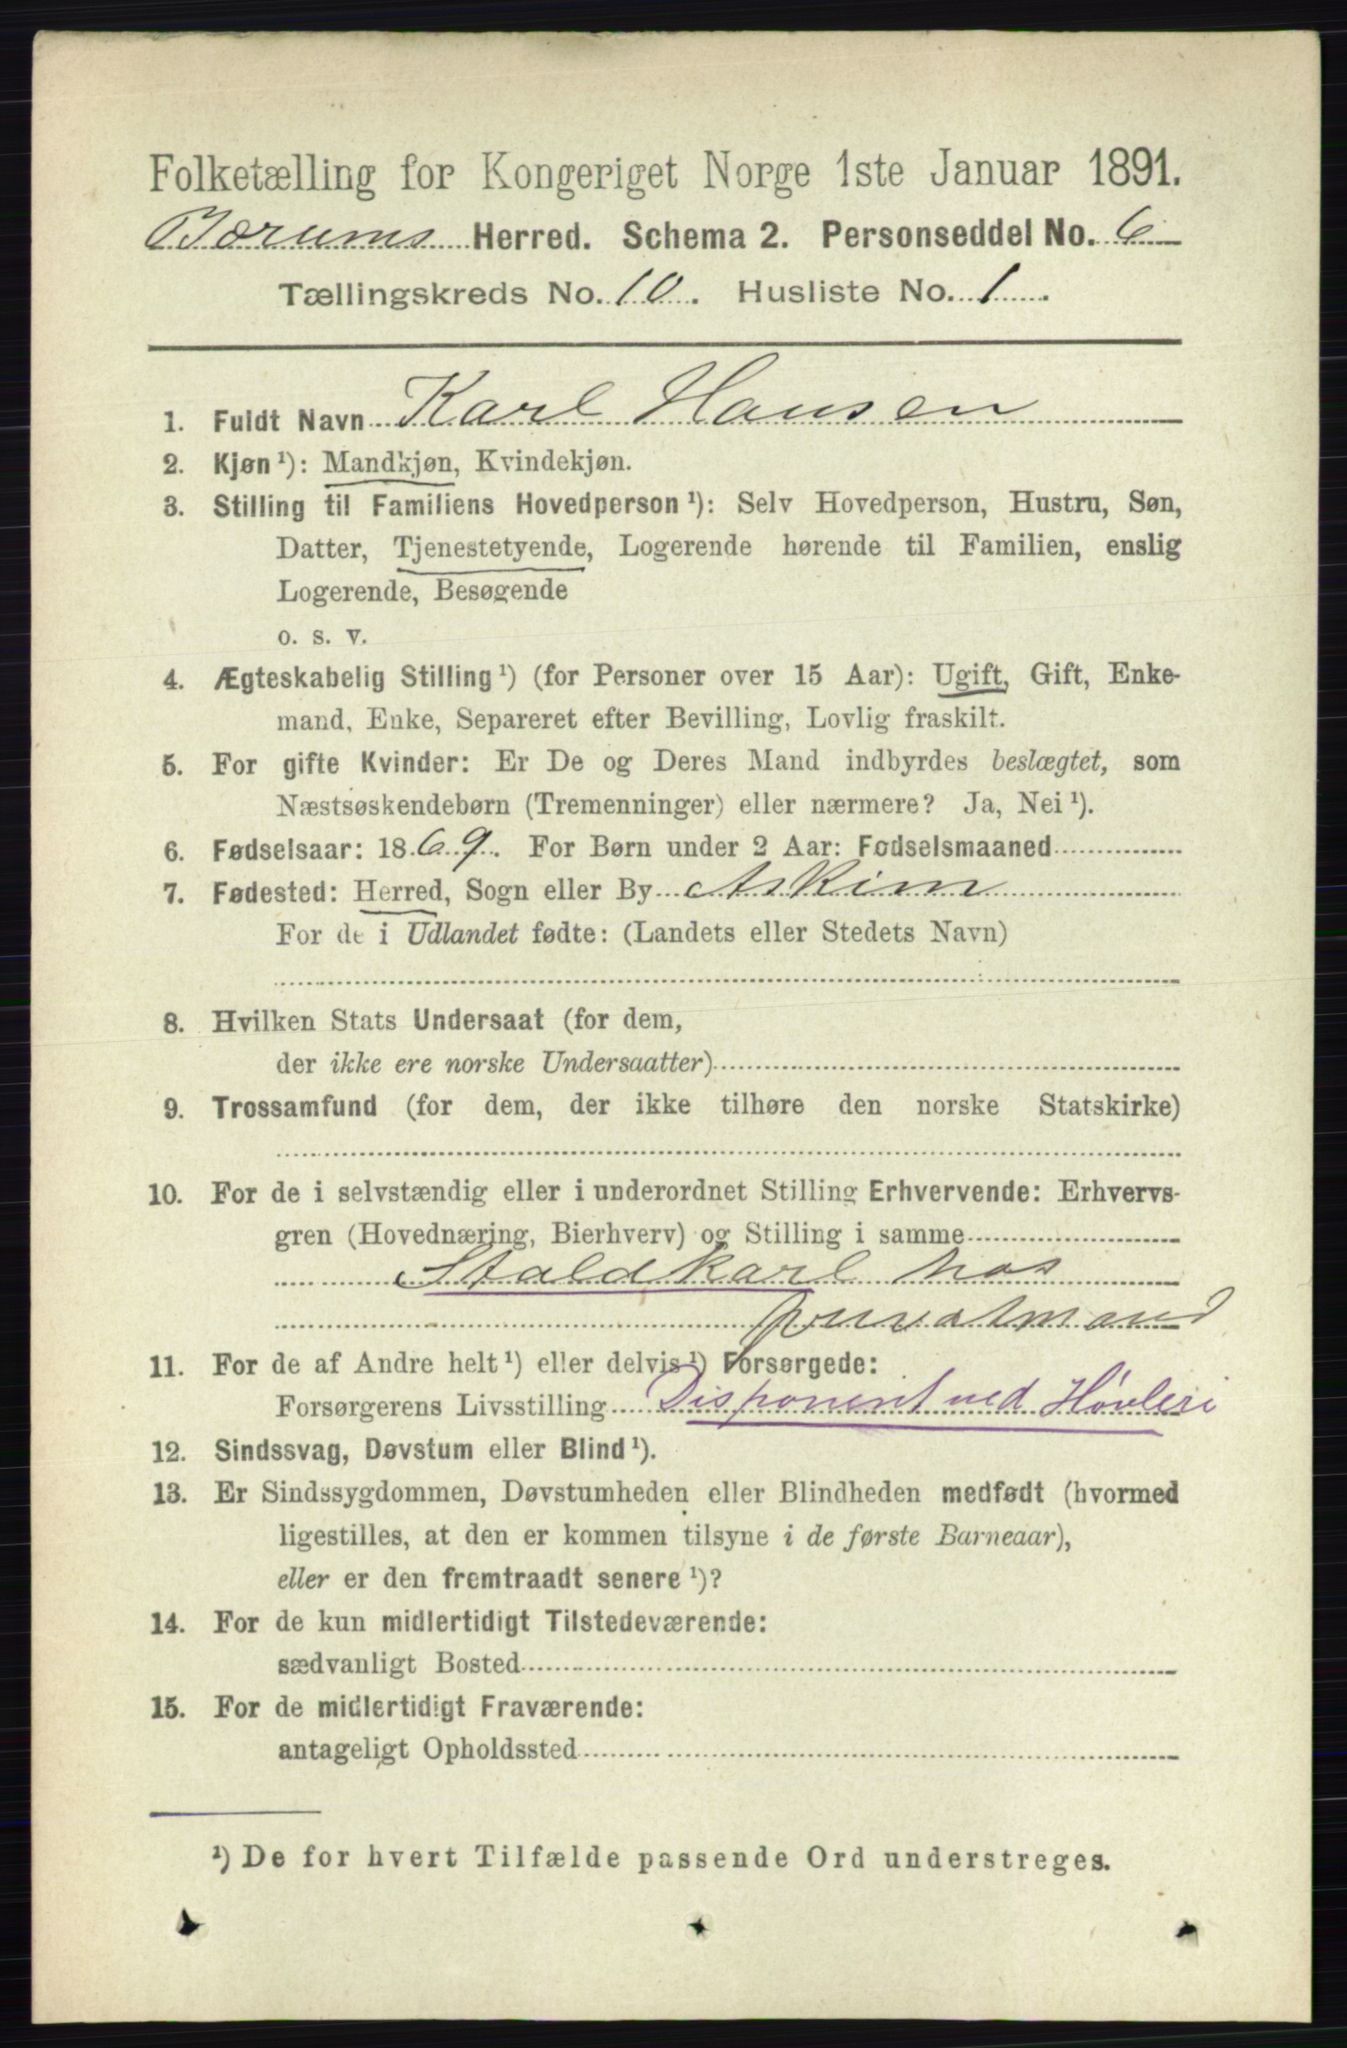 Folketælling for Kongeriget Norge 1ste Januar 1891.
Bærums Herred. Schema 2. Personseddel No. 6
Tællingskreds No. 10. Husliste No. 1.
1. Fuldt Navn Karl Hansen
2. Kjøn ¹): Mandkjøn, Kvindekjøn.
3. Stilling til Familiens Hovedperson ¹): Selv Hovedperson, Hustru, Søn,
Datter, Tjenestetyende, Logerende hørende til Familien, enslig
Logerende, Besøgende
o. s. v.
4. Ægteskabelig Stilling ¹) (for Personer over 15 Aar): Ugift, Gift, Enke-
mand, Enke, Separeret efter Bevilling, Lovlig fraskilt.
5. For gifte Kvinder: Er De og Deres Mand indbyrdes beslægtet, som
Næstsøskendebørn (Tremenninger) eller nærmere? Ja, Nei ¹).
6. Fødselsaar: 1869. For Børn under 2 Aar: Fødselsmaaned
7. Fødested: Herred, Sogn eller By Askim
For de i Udlandet fødte: (Landets eller Stedets Navn)
8. Hvilken Stats Undersaat (for dem,
der ikke ere norske Undersaatter)
9. Trossamfund (for dem, der ikke tilhøre den norske Statskirke)
10. For de i selvstændig eller i underordnet Stilling Erhvervende: Erhvervs-
gren (Hovednæring, Bierhverv) og Stilling i samme
Staldkarl hos
privatmand
11. For de af Andre helt ¹) eller delvis ¹) Forsørgede:
Forsørgerens Livsstilling Disponent ved Høvleri
12. Sindssvag, Døvstum eller Blind ¹).
13. Er Sindssygdommen, Døvstumheden eller Blindheden medfødt (hvormed
ligestilles, at den er kommen tilsyne i de første Barneaar),
eller er den fremtraadt senere ¹)?
14. For de kun midlertidigt Tilstedeværende:
sædvanligt Bosted
15. For de midlertidigt Fraværende:
antageligt Opholdssted
¹) De for hvert Tilfælde passende Ord understreges.